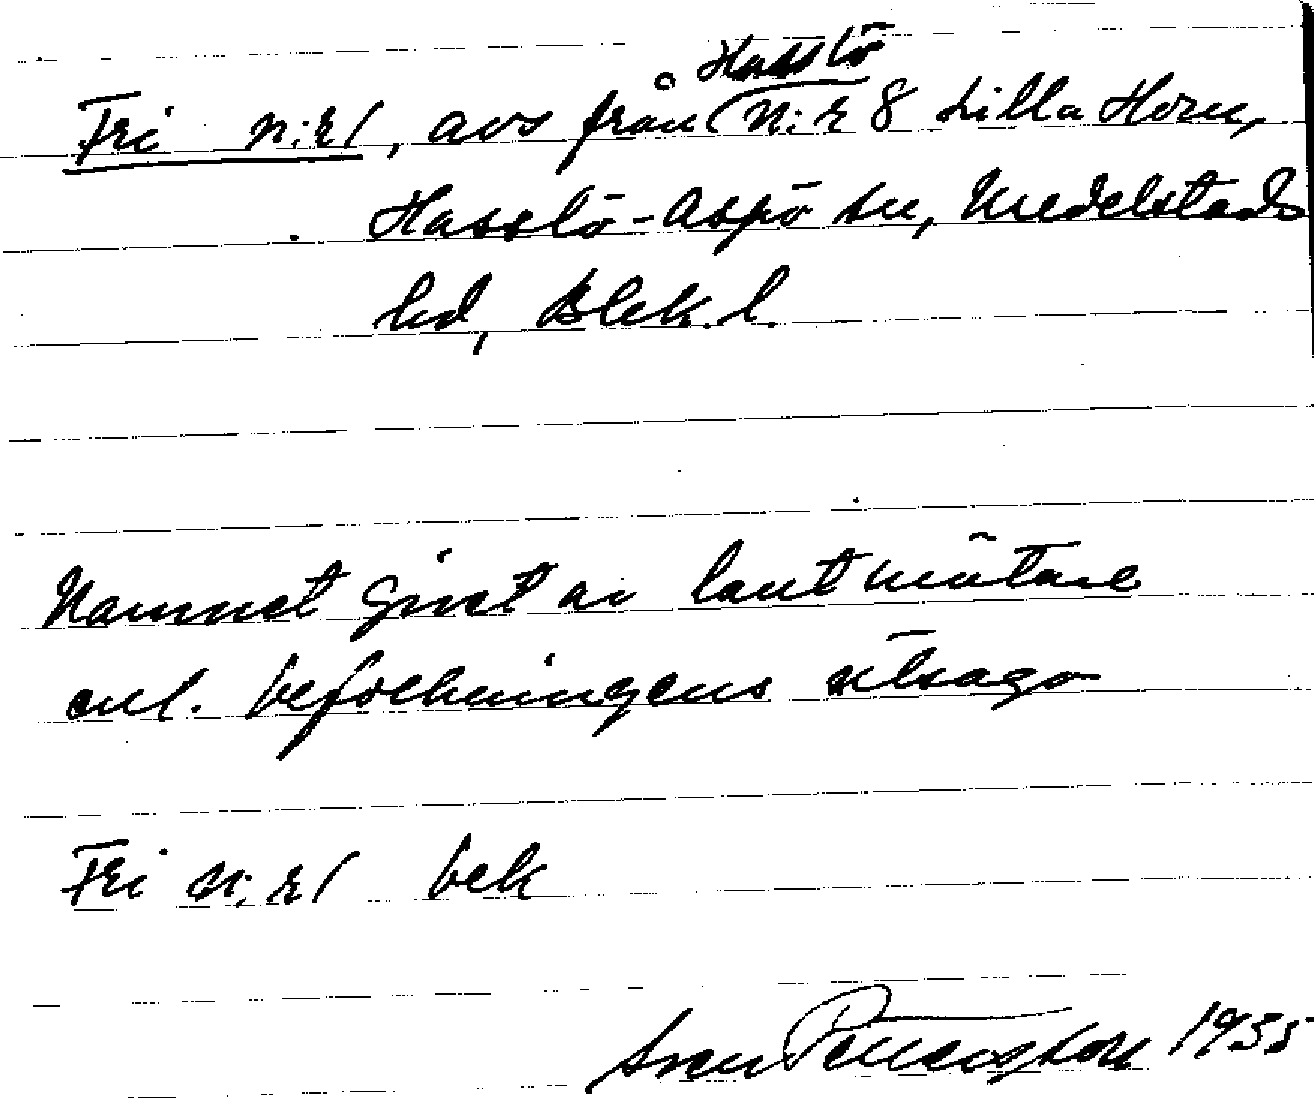 Hasslö
Fri n:r 1, avs från N:r 8 Lilla Horn,
Hasslö-Aspö sn, Medelstads
hd, Blek. l.
Namnet givet av lantmätare
enl. befolkningens utsago
Fri n:r 1 bek
Sven 1935